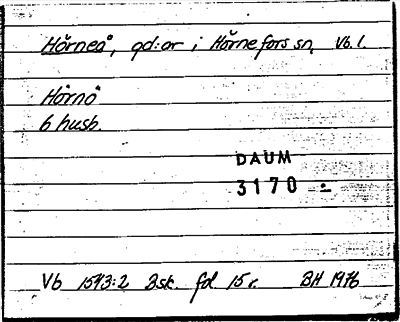 Hörneå, gd:ar i Hörnefors sn, Vb. l.
Hörnö
6 husb.
DAUM
3170 -
Vb 1543:2 Bsk. fol 15 r. BH 1976